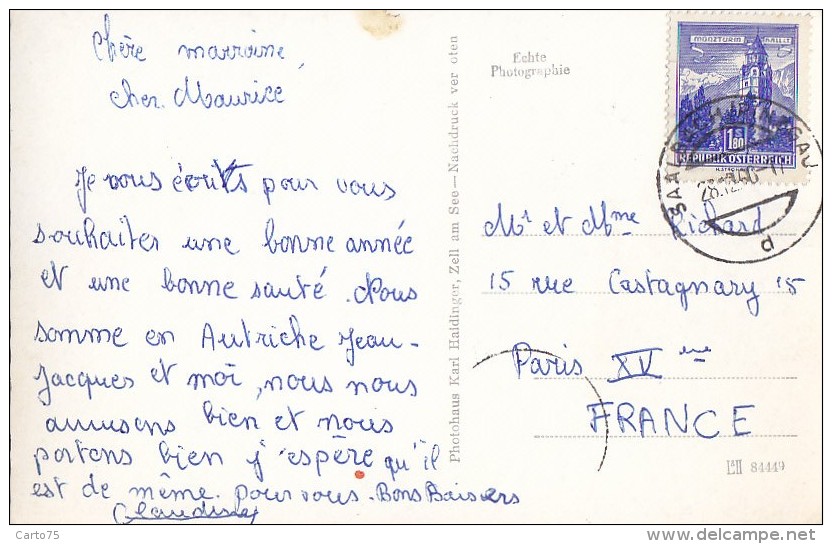 Chère marraine,
cher Maurice
Je vous écrits pour vous
souhaiter une bonne année
et une bonne santé. Nous
somme en Autriche Jean-
Jacques et moi, nous nous
amusons bien et nous
portons bien j'espère qu'il
est de même pour vous. Bons Baisers
Claudine
Photohaus Karl Haldinger, Zell am See—Nachdruck ver oten
Echte
Photographie
MÜNZTURM HALL i.T
1S80
REPUBLIK ÖSTERREICH
SAALBACH PINZGAU
28.12.60-17
d
Mr et Mme Richard
15 rue Castagnary 15
Paris XV eme
FRANCE
84449
Carto75
delcampe.net